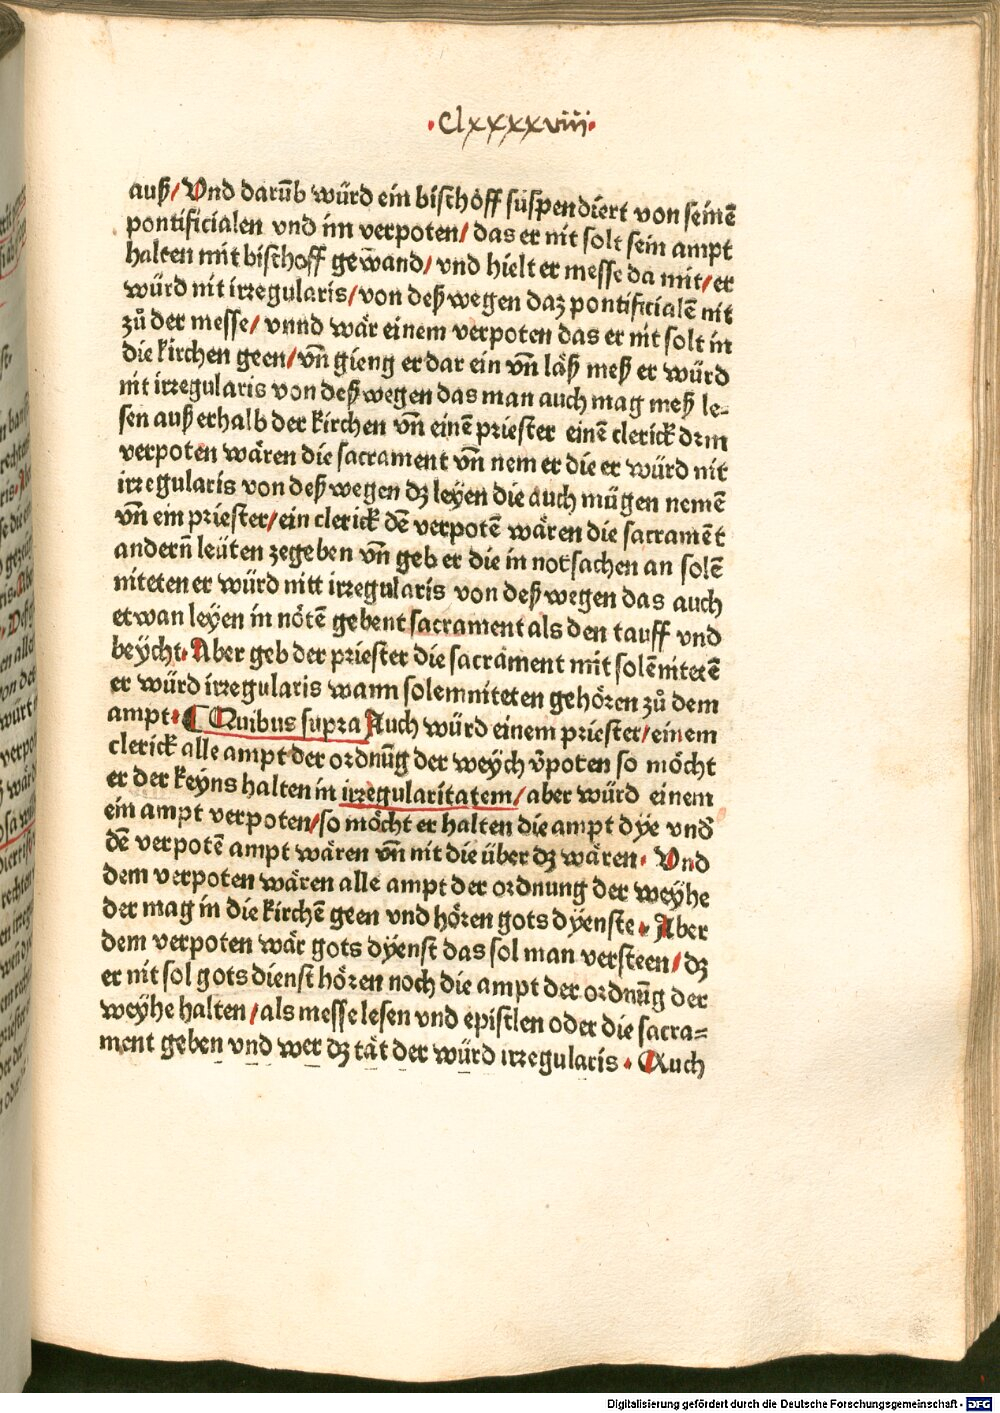 ·Clxxxxviii·
auß/ Vnd darūb würd ein bischoff suspendiert von seinē
pontificialen vnd im verpoten/ das er nit solt sein ampt
halten mit bischoff gewand/ vnd hielt er messe da mit/ er
würd nit irregularis/ von deß wegen daz pontificialē nit
zů der messe/ vnnd wär einem verpoten das er nit solt in
die kirchen geen/ vn̄ gieng er dar ein vn̄ läß meß er würd
nit irregularis von deß wegen das man auch mag meß le-
sen außerhalb der kirchen vn̄ einē priester einē clerick dem
verpoten wären die sacrament vn̄ nem er die er würd nit
irregularis von deß wegen dz leyen die auch mügen nemē
vn̄ ein priester/ ein clerick dē verpotē wären die sacramēt
andern̄ leüten zegeben vn̄ geb er die in notsachen an solē
niteten er würd nitt irregularis von deß wegen das auch
etwan leyen in nötē gebent sacrament als den tauff vnd
beÿcht. Aber geb der priester die sacrament mit solēnitetē
er würd irregularis wann solemniteten gehören zů dem
ampt. ¶ Quibus supra Auch würd einem priester/ einem
clerick alle ampt der ordnūg der weÿch v̄poten so möcht
er der keyns halten in irregularitatem/ aber würd einem
ein ampt verpoten/ so möcht er halten die ampt dÿe vnd̄
dē verpotē ampt wären vn̄ nit die über dz wären. Vnd
dem verpoten wären alle ampt der ordnung der weÿhe
der mag in die kirchē geen vnd hören gots dÿenste. Aber
dem verpoten wär gots dÿenst das sol man versteen/ dz
er nit sol gots dienst hören noch die ampt der ordnūg der
weÿhe halten/ als messe lesen vnd epistlen oder die sacra=
ment geben vnd wer dz tät der würd irregularis. Auch
Digitalisierung gefördert durch die Deutsche Forschungsgemeinschaft - DFG